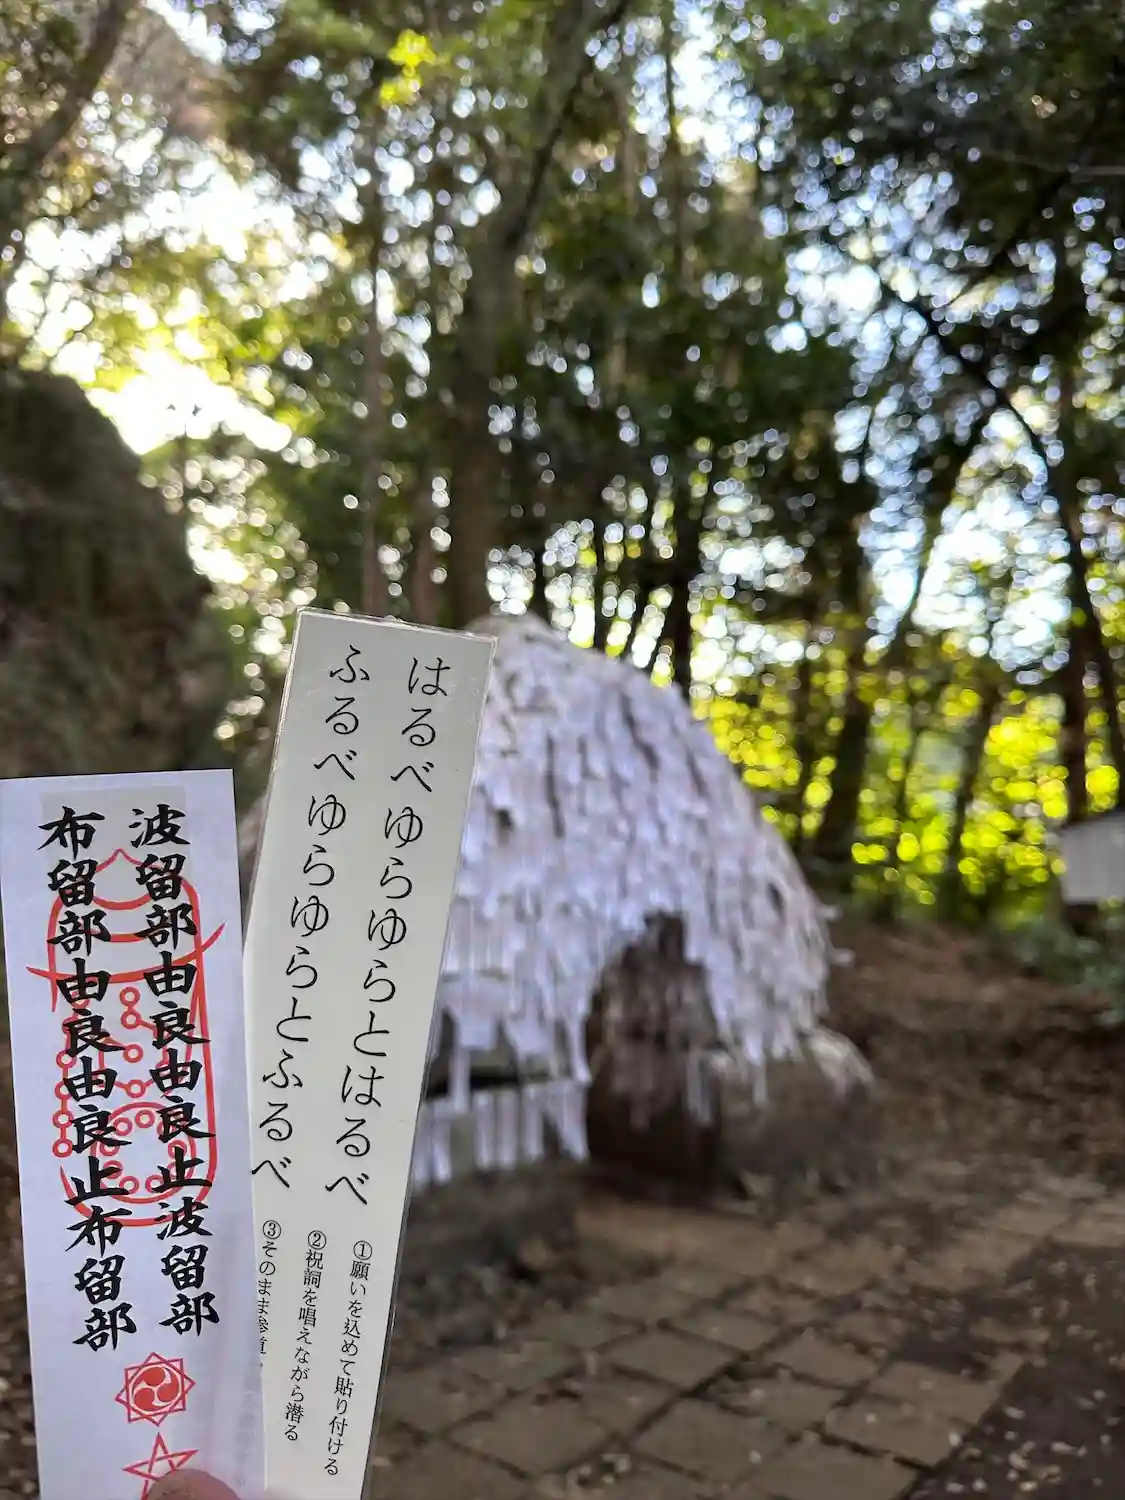 波留部由良由良止波留部
布留部由良由良止布留部
はるべゆらゆらとはるべ
ふるべゆらゆらとふるべ
①願いを込めて貼り付ける
②祝詞を唱えながら潜る
③そのまま参道